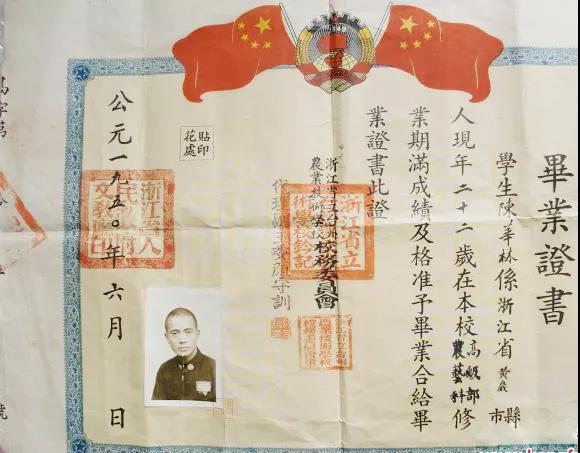 畢業證書
學生陳華林係浙江省黃巖縣市
人現年二十二歲在本校高級部農藝科修
業期滿成績及格准予畢業合給畢
業證書此證
浙江省立台州
農業技術學校校務委員會
貼印
花處
公元一九五〇年六月 日
浙江省人
民政府
文教廳印
浙江省立
術學校鈐記
字第
號